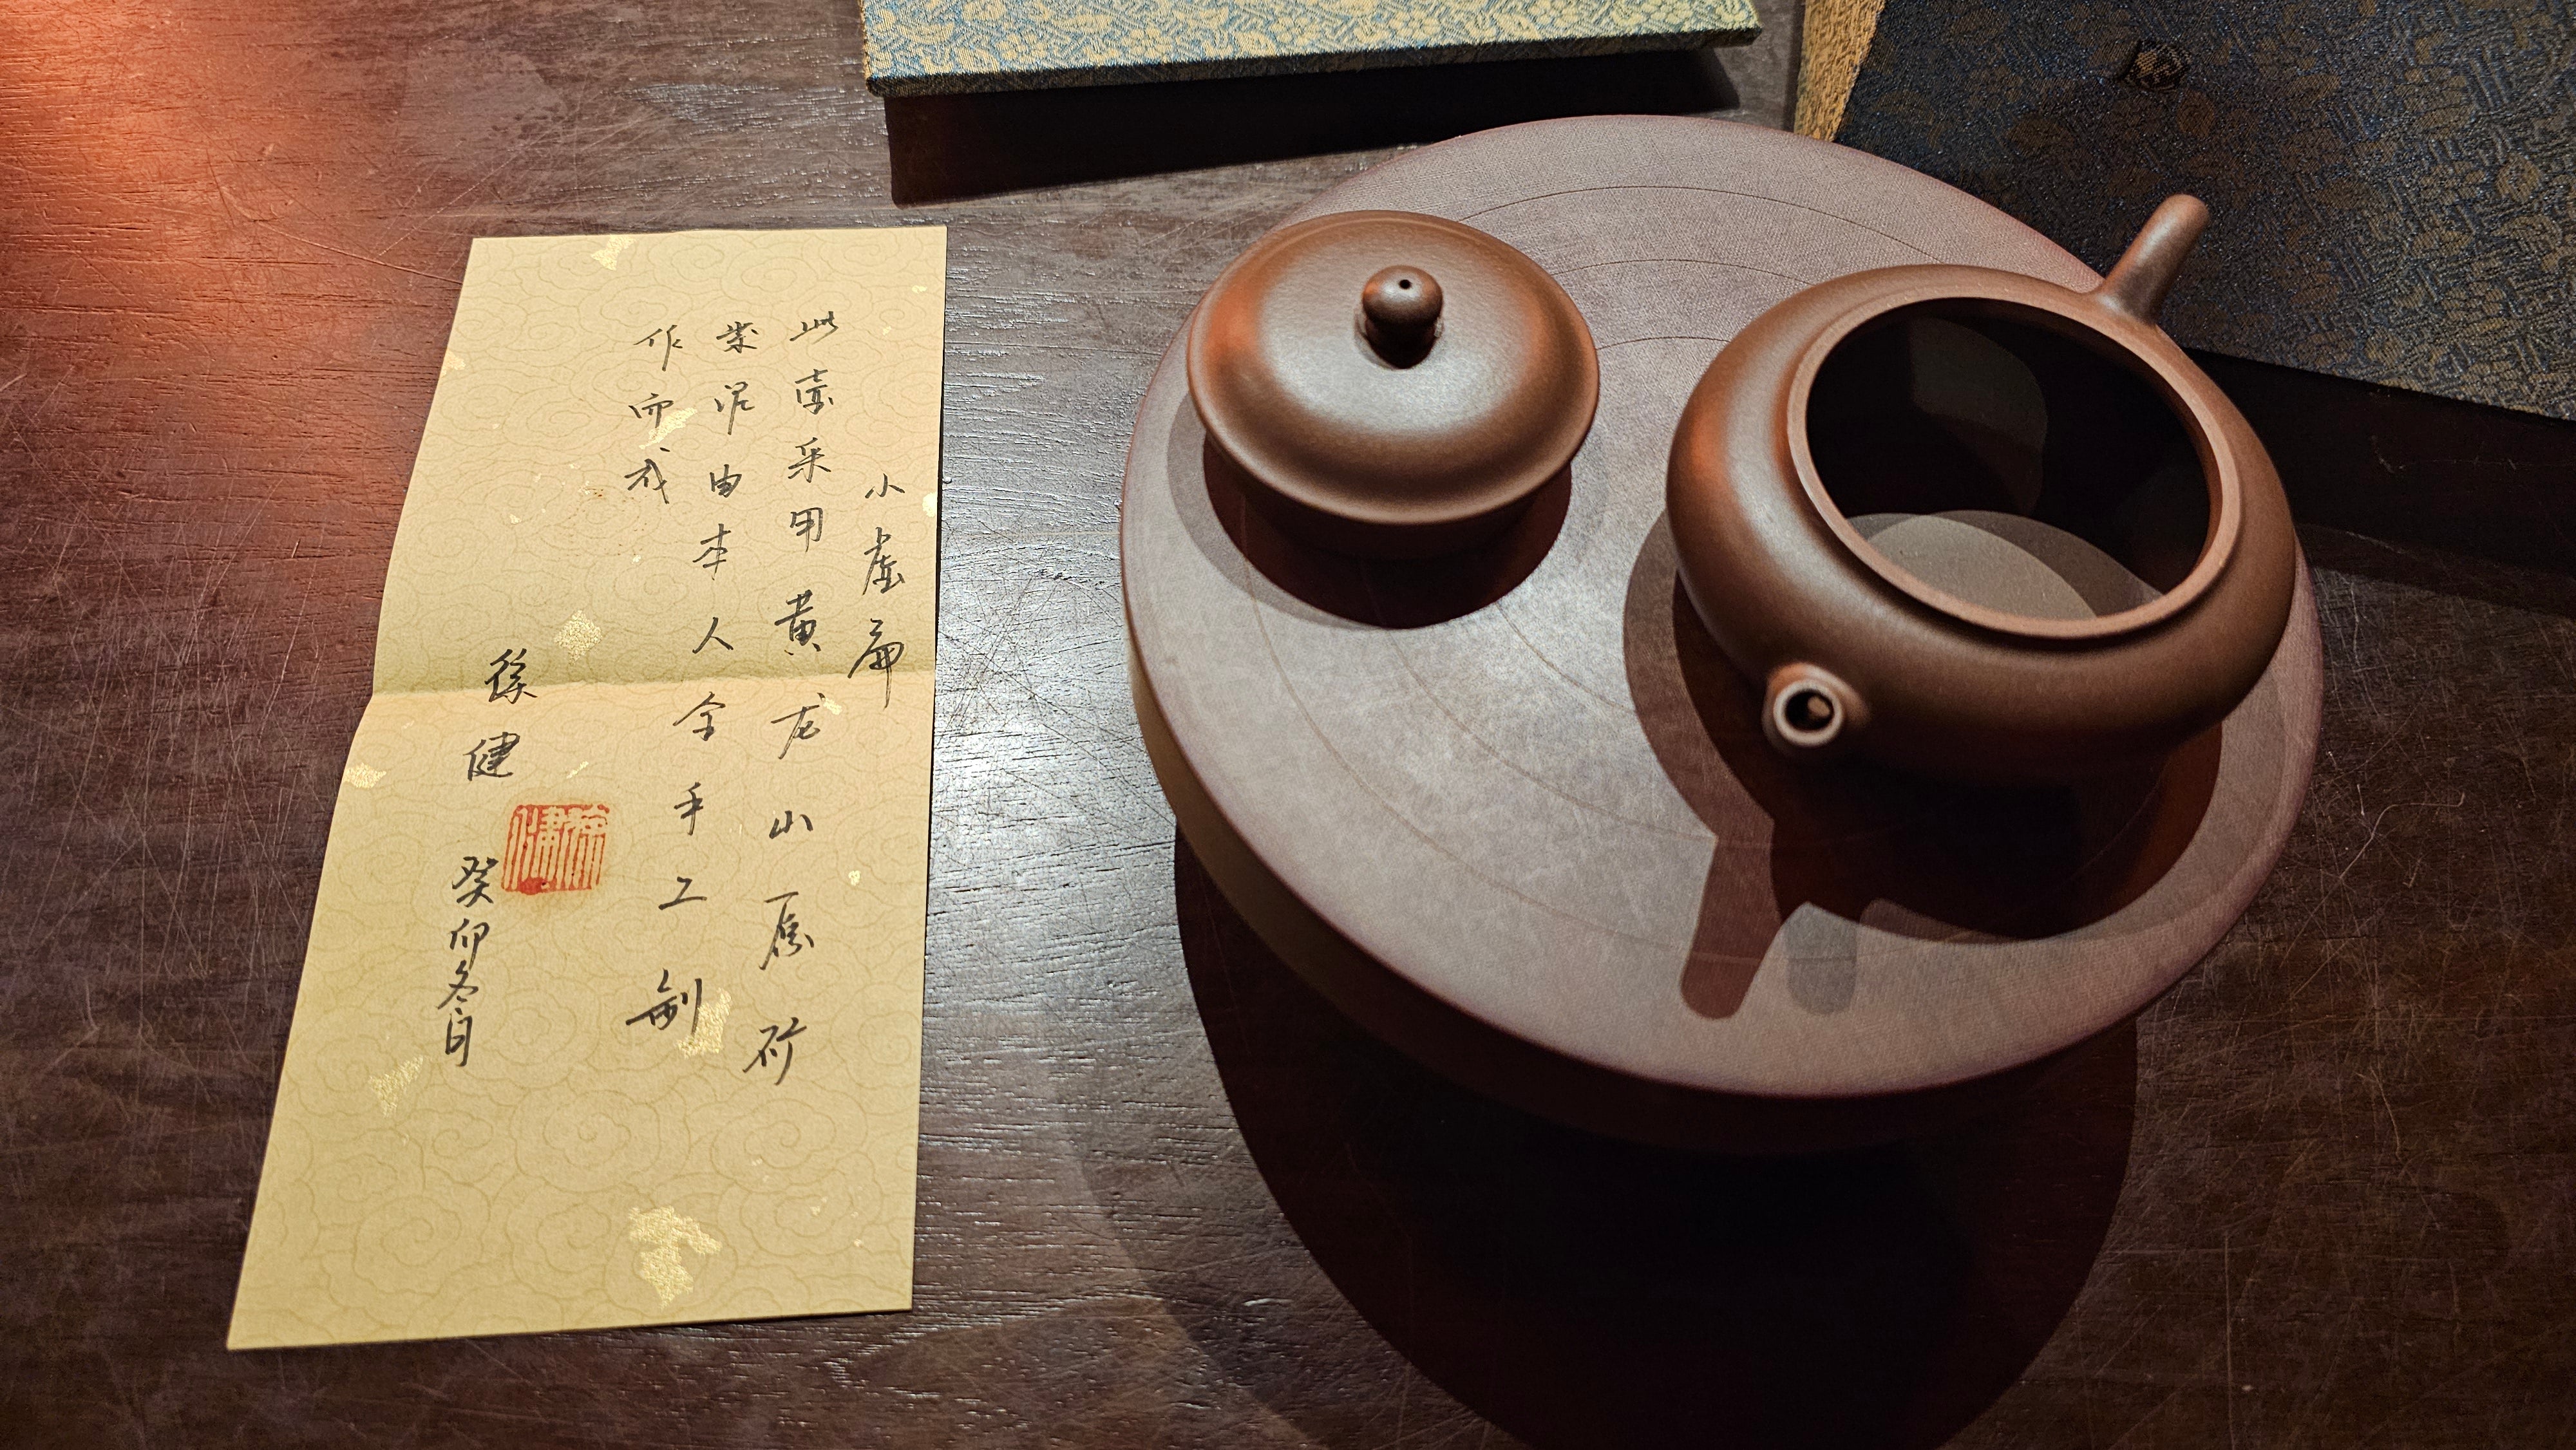 小虚扁
此壶采用黄龙山原矿
紫泥由本人全手工制
作而成
徐健
徐健
癸卯冬月